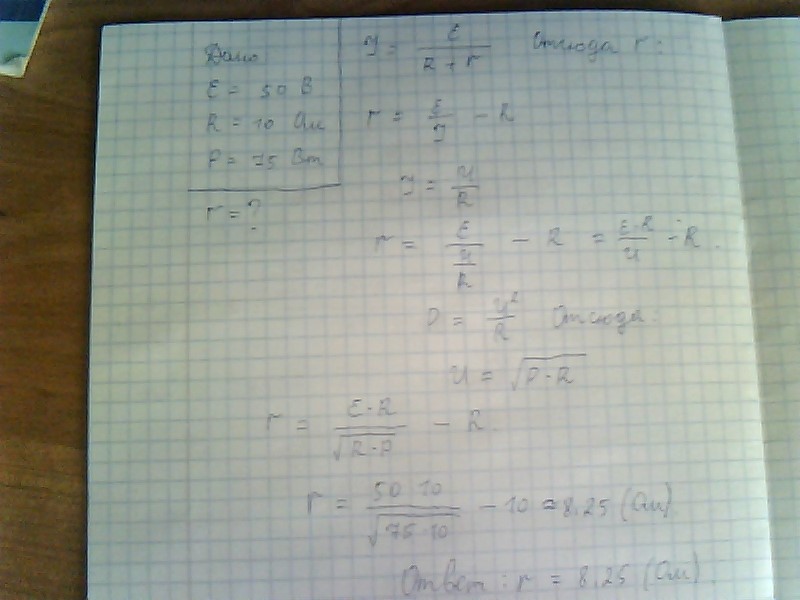 Дано
ε = 50 В
R = 10 Ом
P = 75 Вт
r = ?
I = ε / (R + r) Отсюда r:
r = ε/I − R
I = U/R
r = ε/(U/R) − R = ε·R/U − R.
P = U²/R Отсюда:
U = √(P·R)
r = ε·R/√(R·P) − R.
r = 50·10/√(75·10) − 10 ≈ 8,25 (Ом)
Ответ: r = 8,25 (Ом).